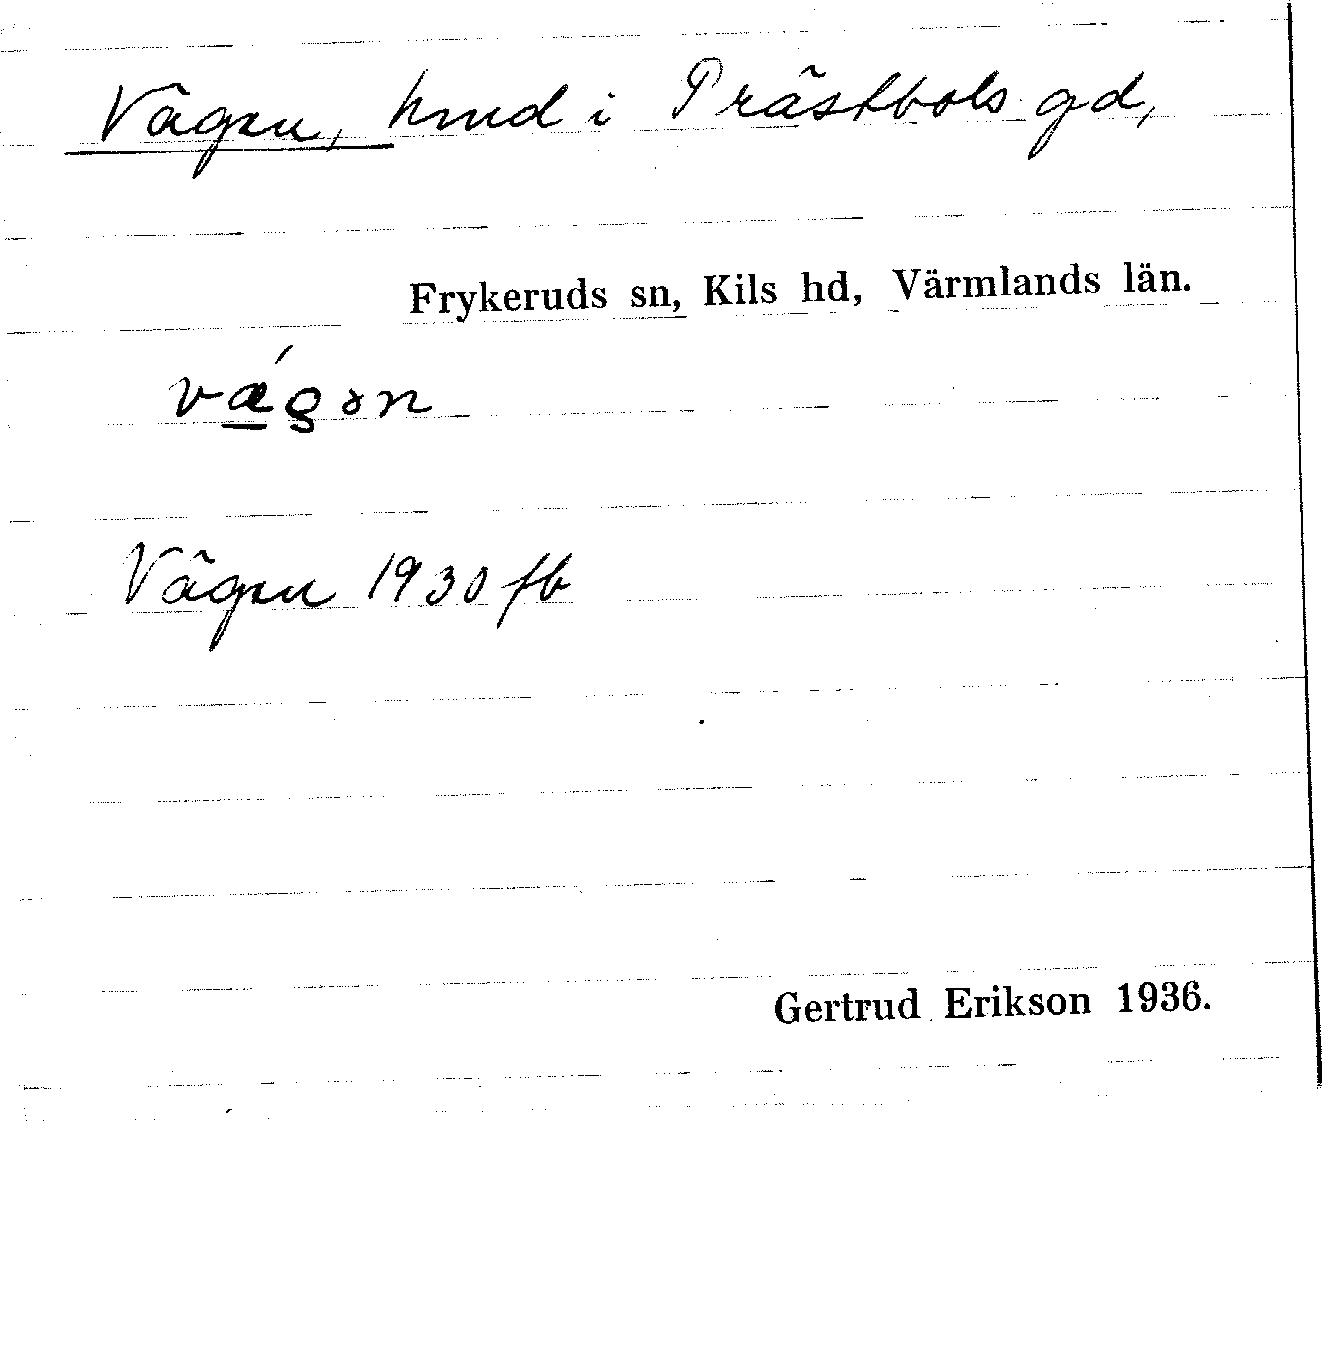 Vägen, hmd i Prästbols gd,
Frykeruds sn, Kils hd, Värmlands län.
Vägen 1930 fb
Gertrud Erikson 1936.